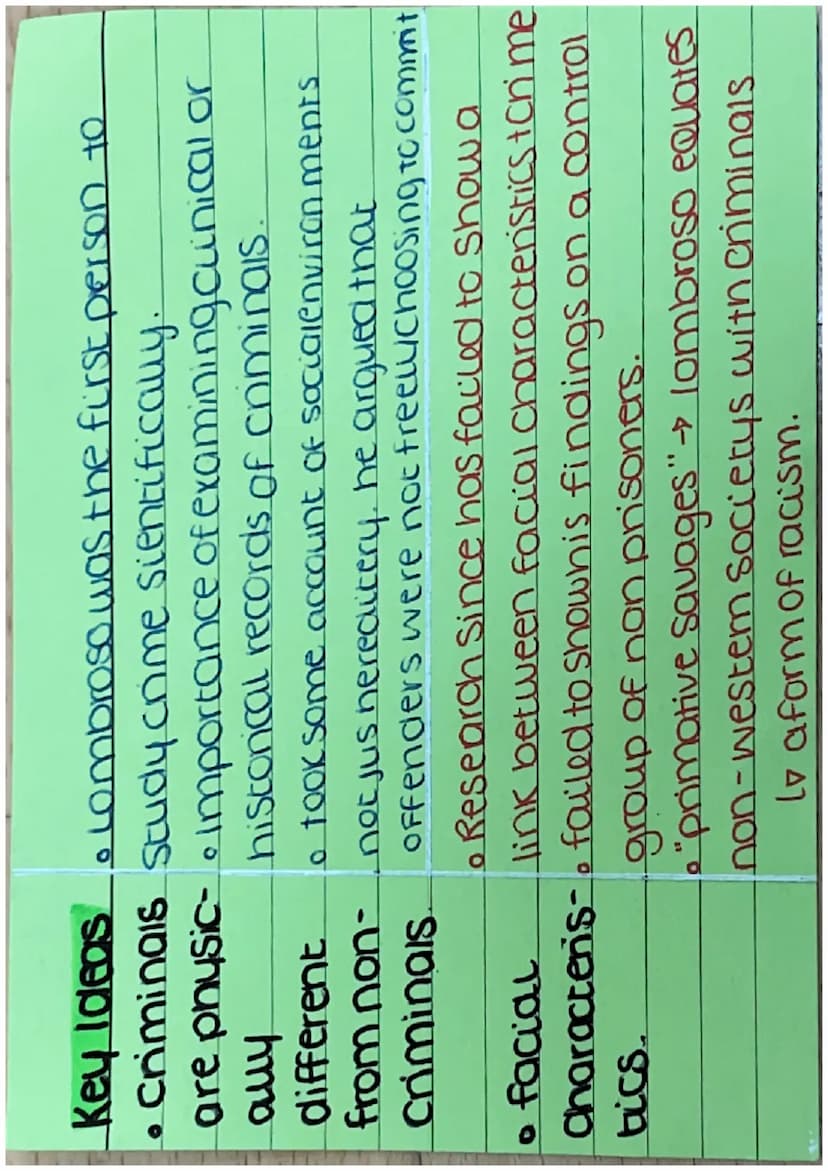 Key Ideas
• criminals
are physic-
ally
different
from non-
criminals.
• facial
characteris-
tics.
• Lombroso was the first person to
study crime sientifically.
• Importance of examining clinical or
historical records of criminals.
• took some account of social environments
not jus hereditery, he argued that
offenders were not freely choosing to commit
• Research since has failed to show a
link between facial characteristics + crime
• failed to show his findings on a control
group of non prisoners.
• "primative savages" → lombroso equates
non-western societys with criminals
↳ a form of racism.